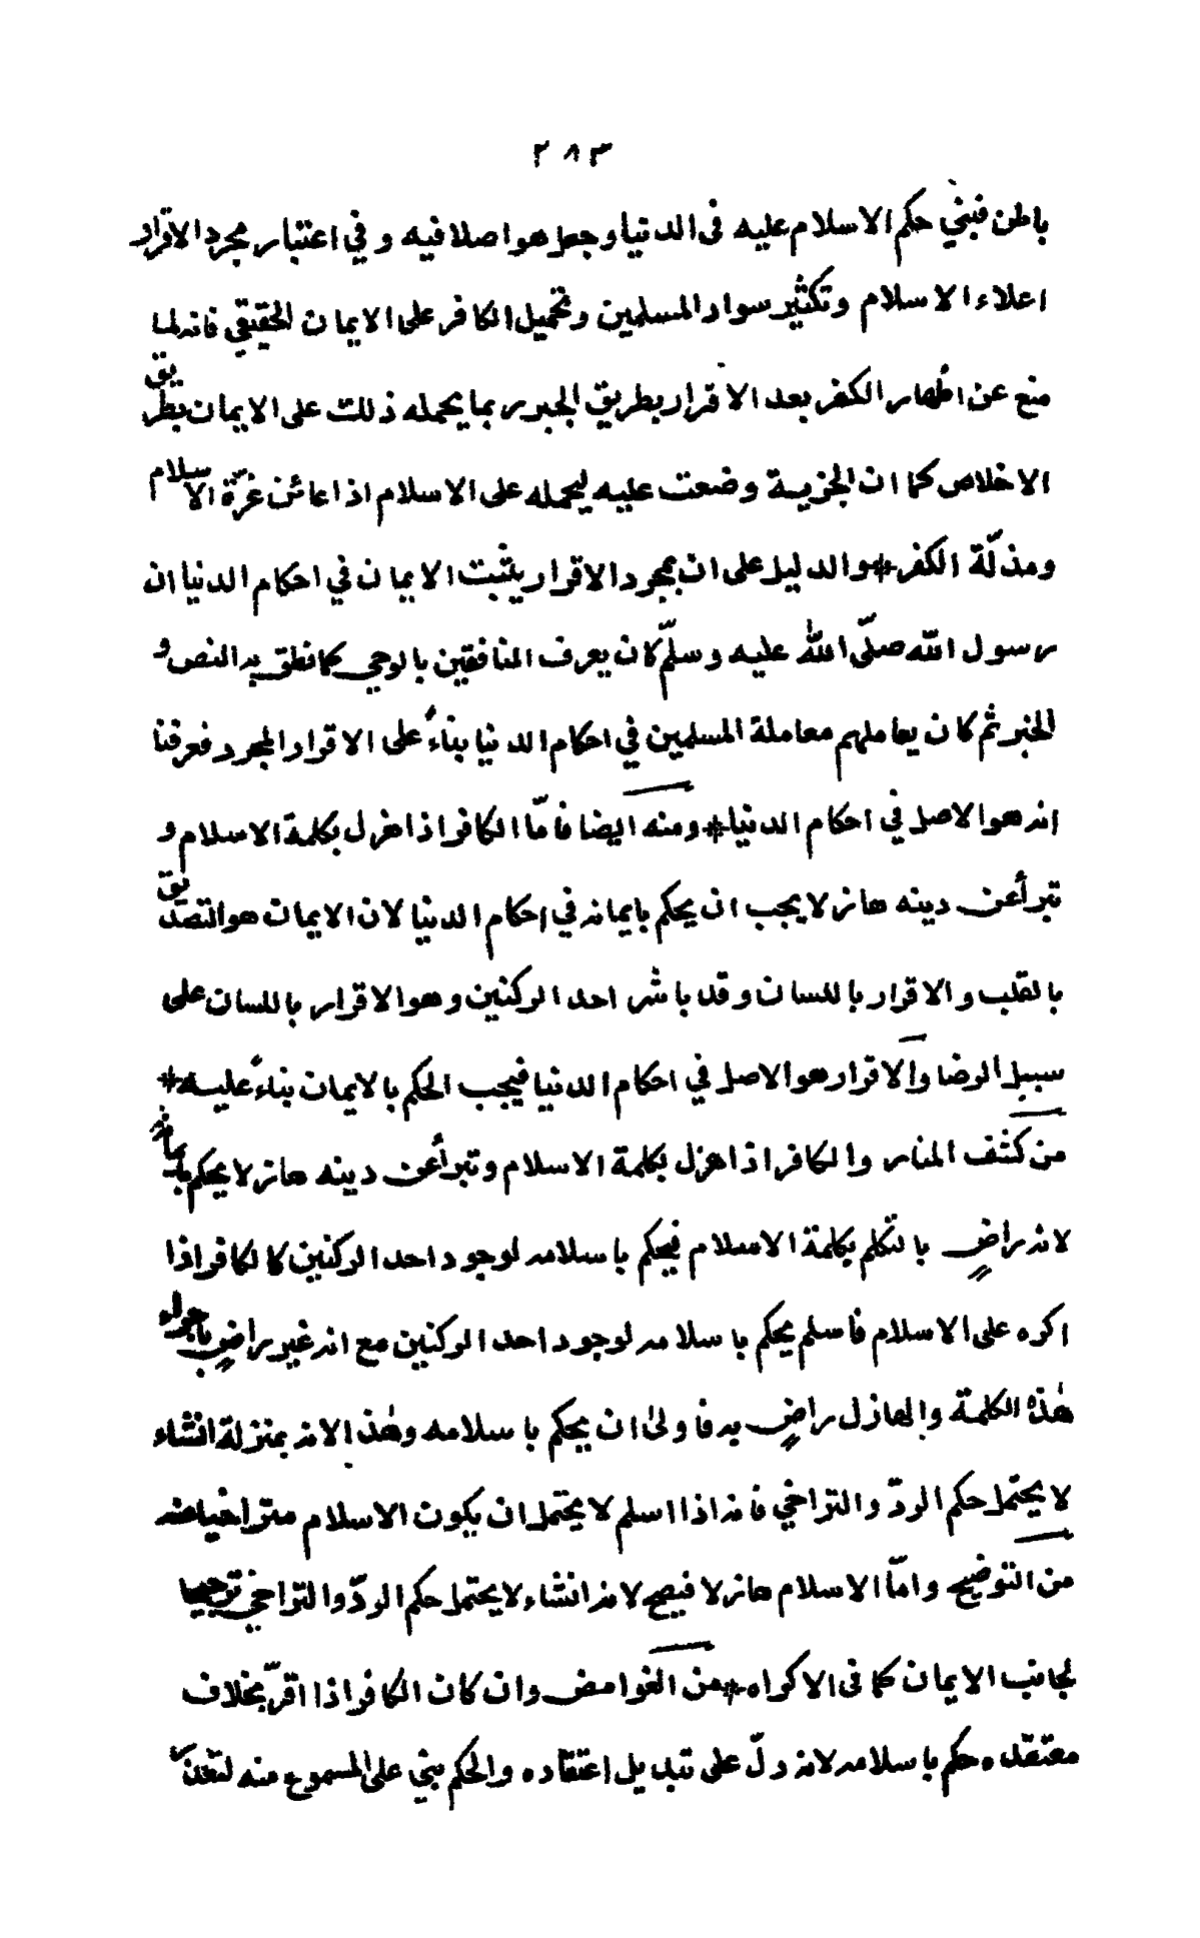 ٢٨٣
باطن فبني حكم الاسلام عليه فى الدنيا وجعل هو اصلا فيه وفي اعتبار مجرد الاقرار
اعلاء الاسلام وتكثير سواد المسلمين وتحميل الكافر على الايمان الحقيقي فانه لما
منع عن اظهار الكفر بعد الاقرار بطريق الجبر ربما يحمله ذلك على الايمان بطريق
الاخلاص كما ان الجزية وضعت عليه ليحمله على الاسلام اذا عائن عزّة الاسلام
ومذلّة الكفر # والدليل على ان بمجرد الاقرار يثبت الايمان في احكام الدنيا ان
رسول الله صلّى الله عليه وسلّم كان يعرف المنافقين بالوحي كما نطق به النص و
الخبر ثم كان يعاملهم معاملة المسلمين في احكام الدنيا بناءً على الاقرار المجرد فعرفنا
انه هو الاصل في احكام الدنيا # ومنه ايضا فامّا الكافر اذا هزل بكلمة الاسلام و
تبرأ عن دينه هازلا يجب ان يحكم بايمانه في احكام الدنيا لان الايمان هو التصديق
بالقلب والاقرار باللسان وقد باشر احد الركنين وهو الاقرار باللسان على
سبيل الرضا والاقرار هو الاصل في احكام الدنيا فيجب الحكم بالايمان بناءً عليه #
من كشف المنار والكافر اذا هزل بكلمة الاسلام وتبرأ عن دينه هازلا يحكم بايمانه
لانه راضٍ بالتكلم بكلمة الاسلام فيحكم باسلامه لوجود احد الركنين كالكافر اذا
اكره على الاسلام فاسلم يحكم باسلامه لوجود احد الركنين مع انه غير راضٍ باجراء
هٰذه الكلمة والهازل راضٍ به فاولىٰ ان يحكم باسلامه وهٰذا لانه بمنزلة انشاء
لا يحتمل حكم الردّ والتراخي فانه اذا اسلم لا يحتمل ان يكون الاسلام متراخيا عنه
من التوضيح وامّا الاسلام هازلا فيصح لانه انشاء لا يحتمل حكم الردّ والتراخي ترجيحا
لجانب الايمان كما فى الاكراه # من الغوامض وان كان الكافر اذا اقرّ بخلاف
معتقده حكم باسلامه لانه دلّ على تبديل اعتقاده والحكم بني على المسموع منه لتعذّر